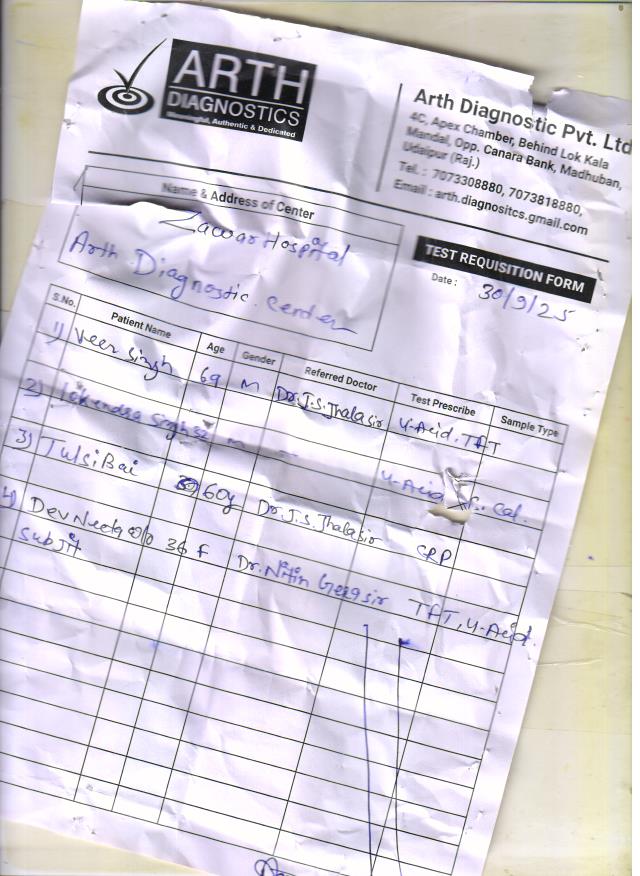 ARTH
DIAGNOSTICS
Meaningful, Authentic & Dedicated
Arth Diagnostic Pvt. Ltd
4C, Apex Chamber, Behind Lok Kala
Mandal, Opp. Canara Bank, Madhuban,
Udaipur (Raj.)
Tel. : 7073308880, 7073818880,
Email : arth.diagnositcs.gmail.com
Name & Address of Center
Zawar Hospital
Arth Diagnostic Center
TEST REQUISITION FORM
Date : 30/9/25
S.No. Patient Name Age Gender Referred Doctor Test Prescribe Sample Type
1) Veer Singh 69 M Dr. J.S. Jhala sir U-Acid, TFT
2) Lokendra Singh M U-Acid Cal.
3) Tulsi Bai 60y Dr. J.S. Jhala sir CRP
4) Dev Neeta 36 F Dr. Nitin sir TFT, U-Acid.